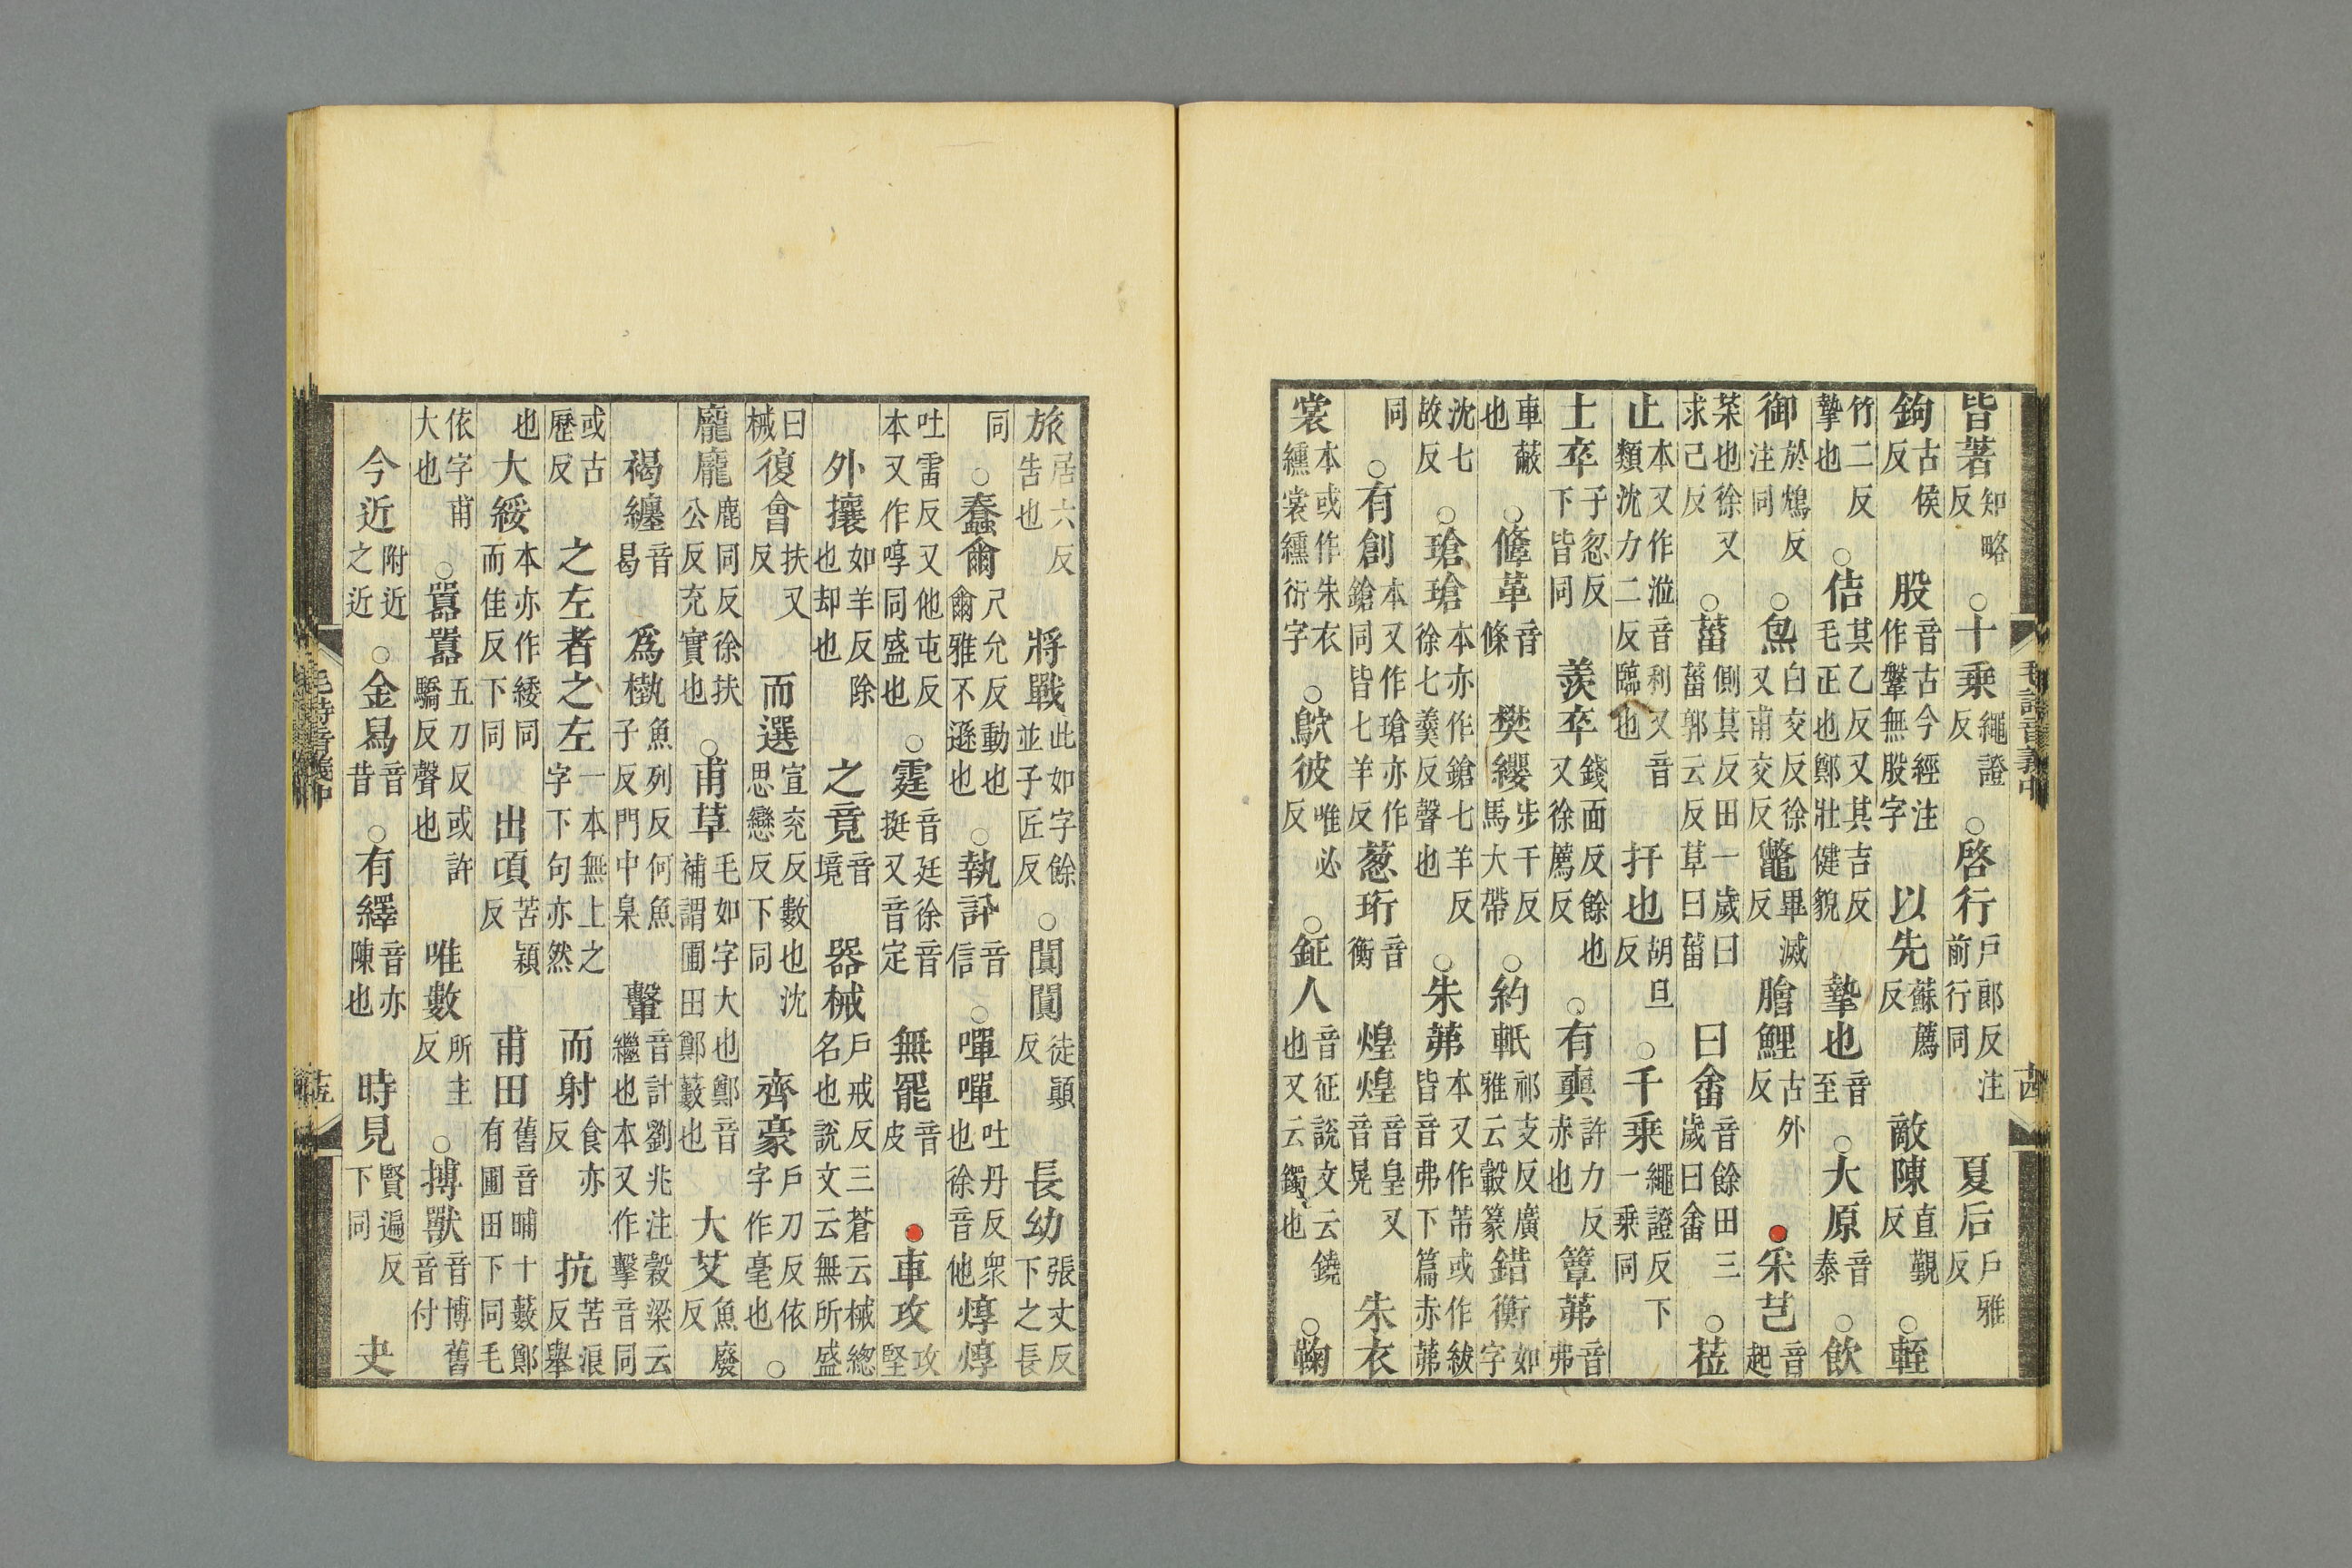 皆著知略反○十乗繩證反○啓行戸郎反注前行同夏后戸雅反
鉤古侯反股音古今經注作鞶無股字以先蘇薦反敵陳直覲反○輊
竹二反摯也○佶其乙反又其吉反毛正也鄭壯健貌摯也音至○大原音泰○飲
御於鴆反注同○炰白交反徐又甫交反鼈畢滅反膾鯉古外反●采芑音起
菜也徐又求己反○菑側其反田一歲曰菑郭云反草曰菑曰畬音餘田三歲曰畬○莅
止本又作涖音利又音類沈力二反臨也扞也胡旦反○千乗繩證反下一乗同
士卒子忽反下皆同羡卒錢面反餘也又徐薦反○有奭許力反赤也簟茀音弗
車蔽也○鞗革音條樊纓步千反馬大帶○約軧祁支反廣雅云轂篆錯衡如字
沈七故反○瑲瑲本亦作鎗七羊反徐七羹反聲也○朱茀本又作芾或作紱皆音弗下篇赤茀
同○有創本又作瑲亦作鎗同皆七羊反葱珩音衡煌煌音皇又音晃朱衣
裳本或作朱衣纁裳纁衍字○鴥彼唯必反○鉦人音征說文云鐃也又云鐲也○鞠
毛詩音義中 十四
旅居六反告也將戰此如字餘並子匠反○闐闐徒顚反長幼張丈反下之長
同○蠢爾尺允反動也爾雅不遜也○執訊音信○嘽嘽吐丹反衆也徐音他焞焞
吐雷反又他屯反本又作啍同盛也○霆音廷徐音挺又音定無罷音皮●車攻攻堅
外攘如羊反除也却也之竟音境器械戸戒反三蒼云械緫名也說文云無所盛
曰械復會扶又反而選宣兖反數也沈思戀反下同齊豪戸刀反依字作毫也○
龐龐鹿同反徐扶公反充實也○甫草毛如字大也鄭音補謂圃田鄭藪也大艾魚廢反
褐纏音曷爲槸魚列反何魚子反門中臬轚音計劉兆注榖梁云繼也本又作擊音同
或古歷反之左者之左一本無上之字下句亦然而射食亦反抗苦浪反舉
也大綏本亦作緌同而佳反下同出頃苦頴反甫田舊音晡十藪鄭有圃田下同毛
依字甫大也○囂囂五刀反或許驕反聲也唯數所主反○搏獸音博舊音付
今近附近之近○金舄音昔○有繹音亦陳也時見賢遍反下同史
毛詩音義中 十五